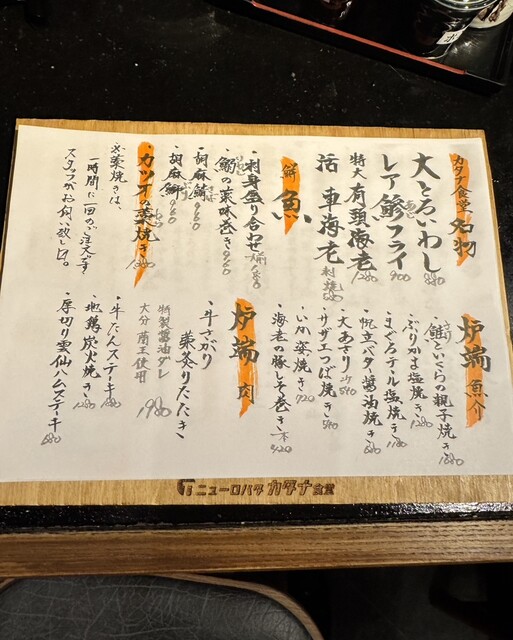 カタナ食堂名物
大とろいわし 880
レア鯵フライ 900
特大有頭海老 1280
活車海老
鮮魚
・刺身盛り合わせ
・鰯の薬味巻き 960
・胡麻鯖 960
・胡麻鰤 960
カツオの藁焼き 1880
※藁焼きは、
一時間に一回のご注文です
スタッフがお伺い致します。
炉端 魚介
・鮭といくらの親子焼き 1880
・ぶりかま塩焼き 1280
・まぐろテール塩焼き 1180
・帆立バター醤油焼き 680
・大あさり 2ケ 540
・サザエつぼ焼き 540
・いか姿焼き 720
・海老の豚しそ巻き 一本 420
炉端 肉
・牛さがり
藁炙りたたき
特製醤油ダレ
大分 蘭王使用
1980
・牛たんステーキ 1680
・地鶏炭火焼き 1280
・厚切り雲仙ハムステーキ 680
ニューロバタ カタナ食堂